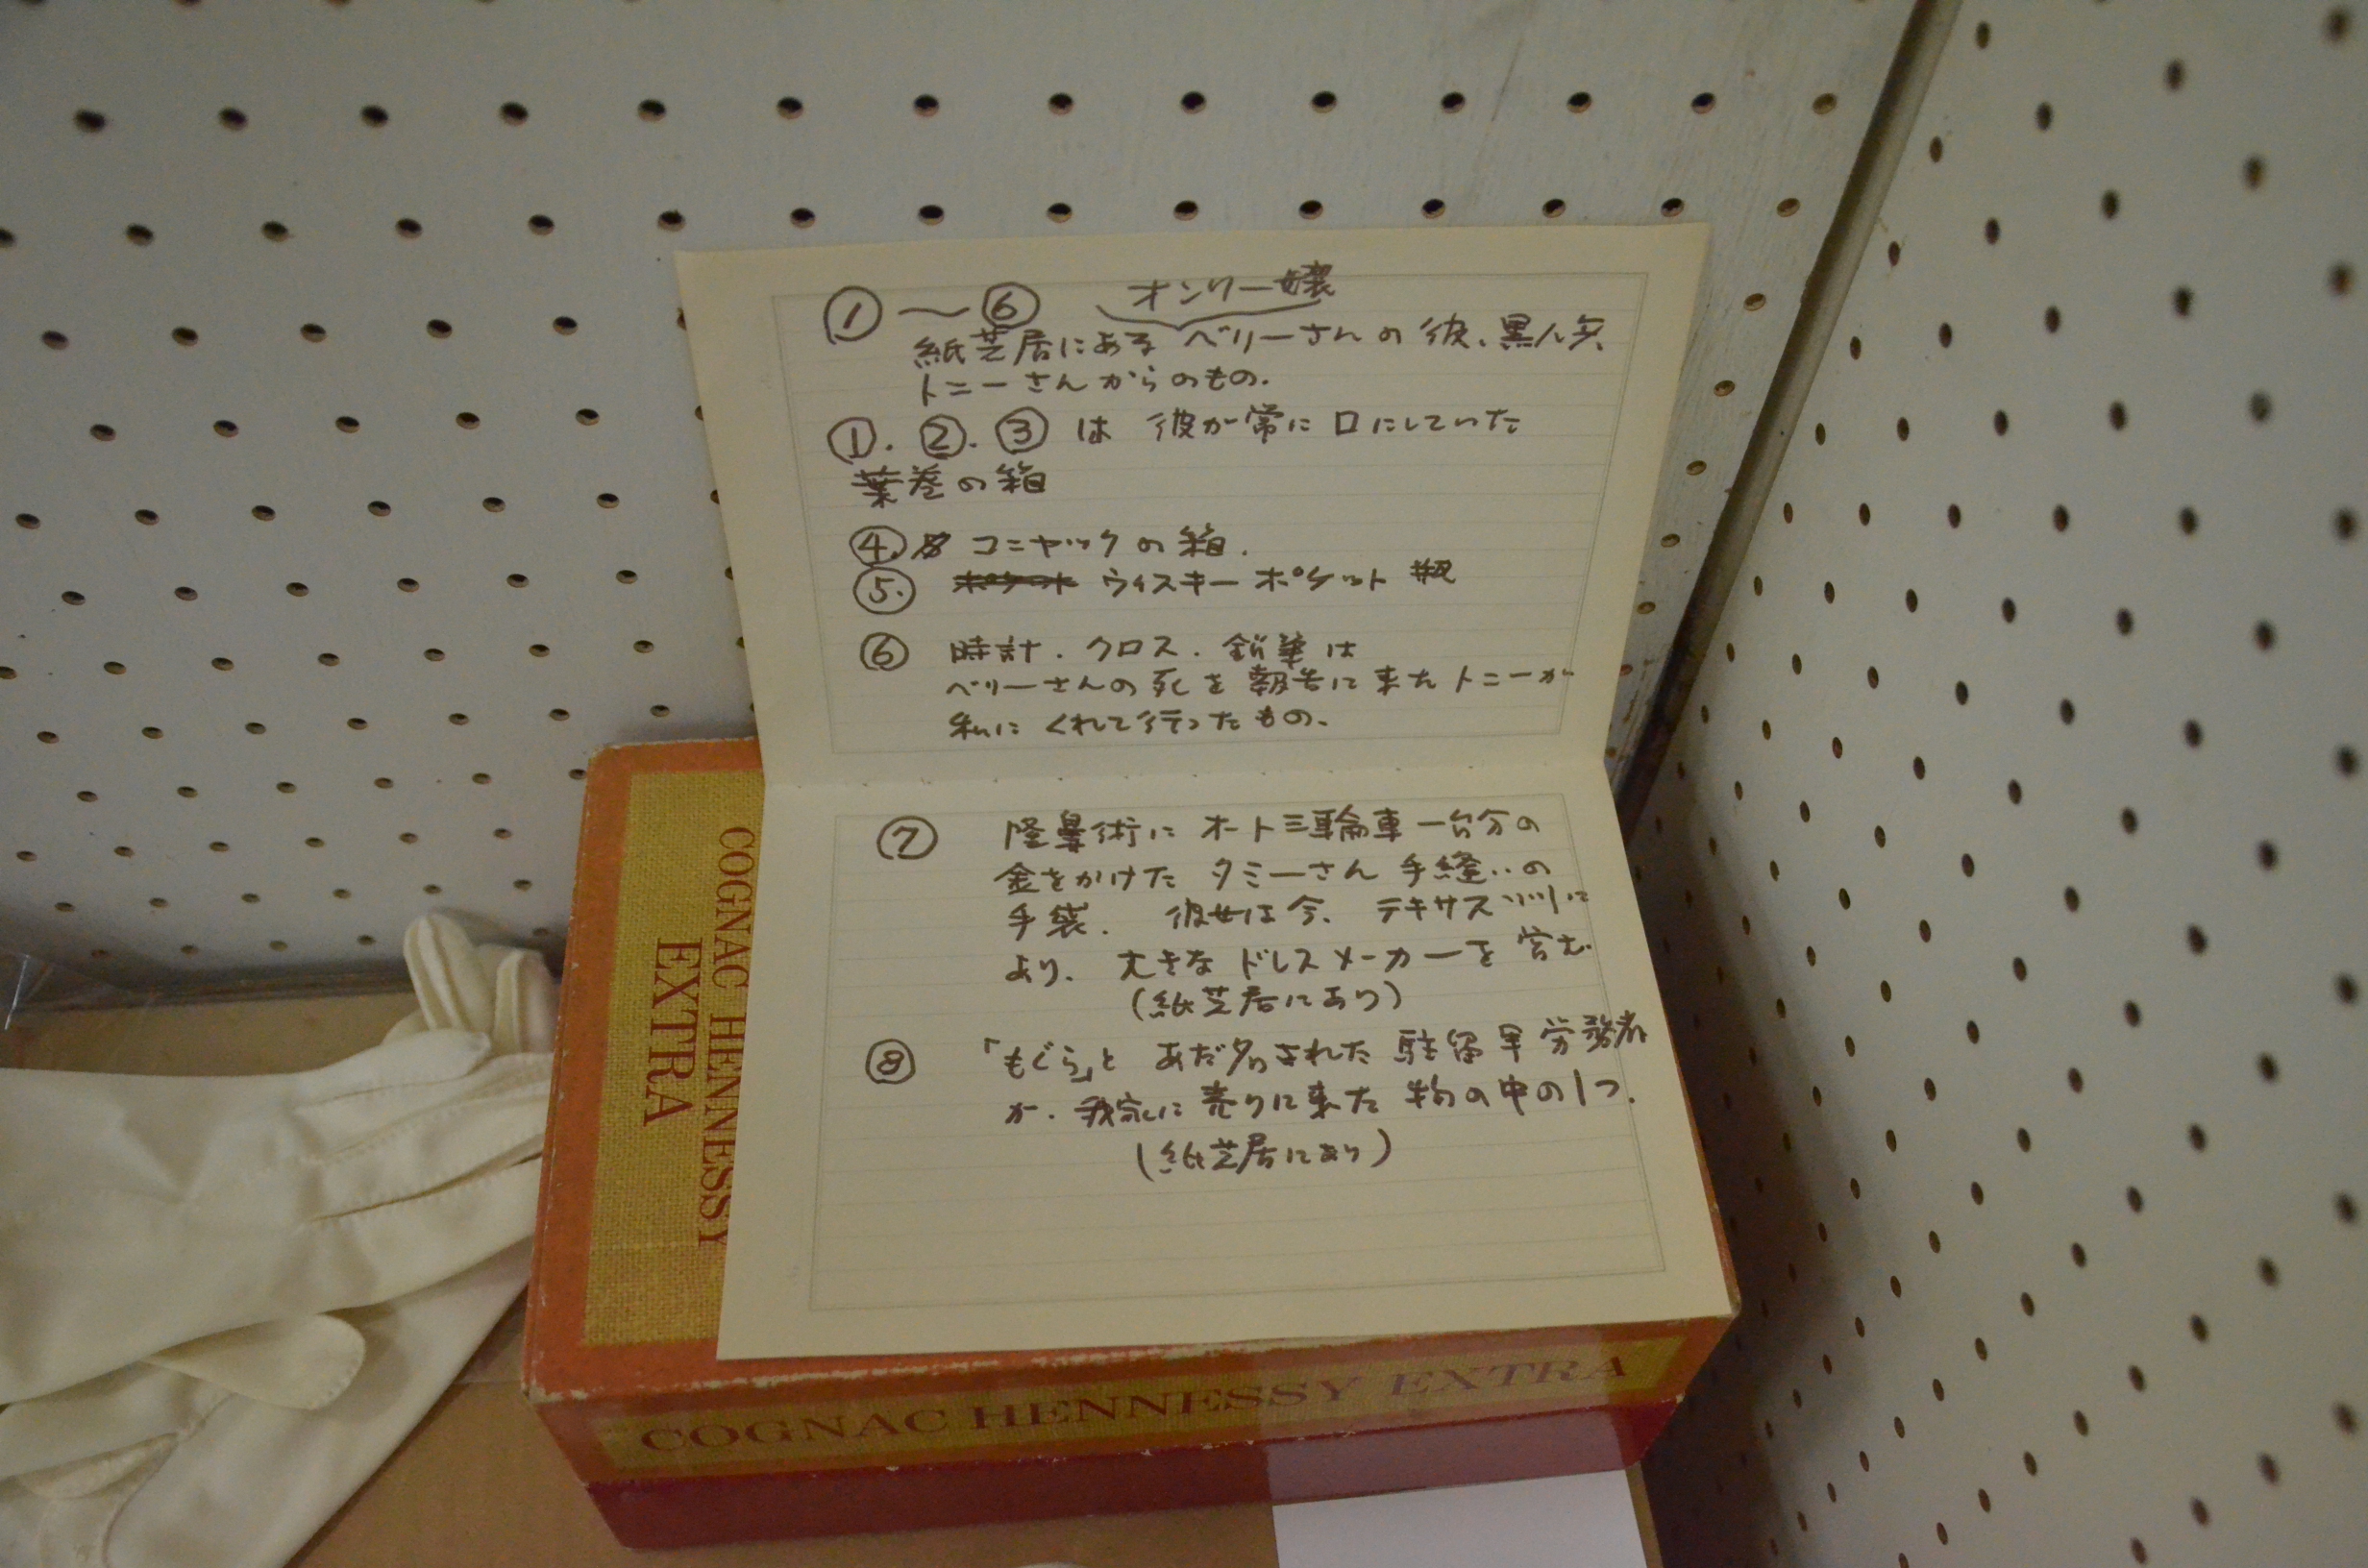 ①〜⑥ オンリー嬢
紙芝居にある ベリーさんの彼、黒人兵、
トニーさんからのもの.
①.②.③は 彼が常に口にしていた
葉巻の箱
④. コニヤックの箱.
⑤. ウィスキーポケット瓶
⑥ 時計.クロス.鉛筆は
ベリーさんの死を報告に来たトニーが
私にくれて行ったもの、
⑦ 隆鼻術にオート三輪車一台分の
金をかけた タミーさん手縫いの
手袋. 彼女は今、テキサス州に
あり、大きなドレスメーカーを営む
(紙芝居にあり)
⑧ 「もぐら」と あだ名された 駐留軍労務者
が、我家に売りに来た物の中の1つ.
(紙芝居にあり)
COGNAC HENNESSY
EXTRA
COGNAC HENNESSY EXTRA